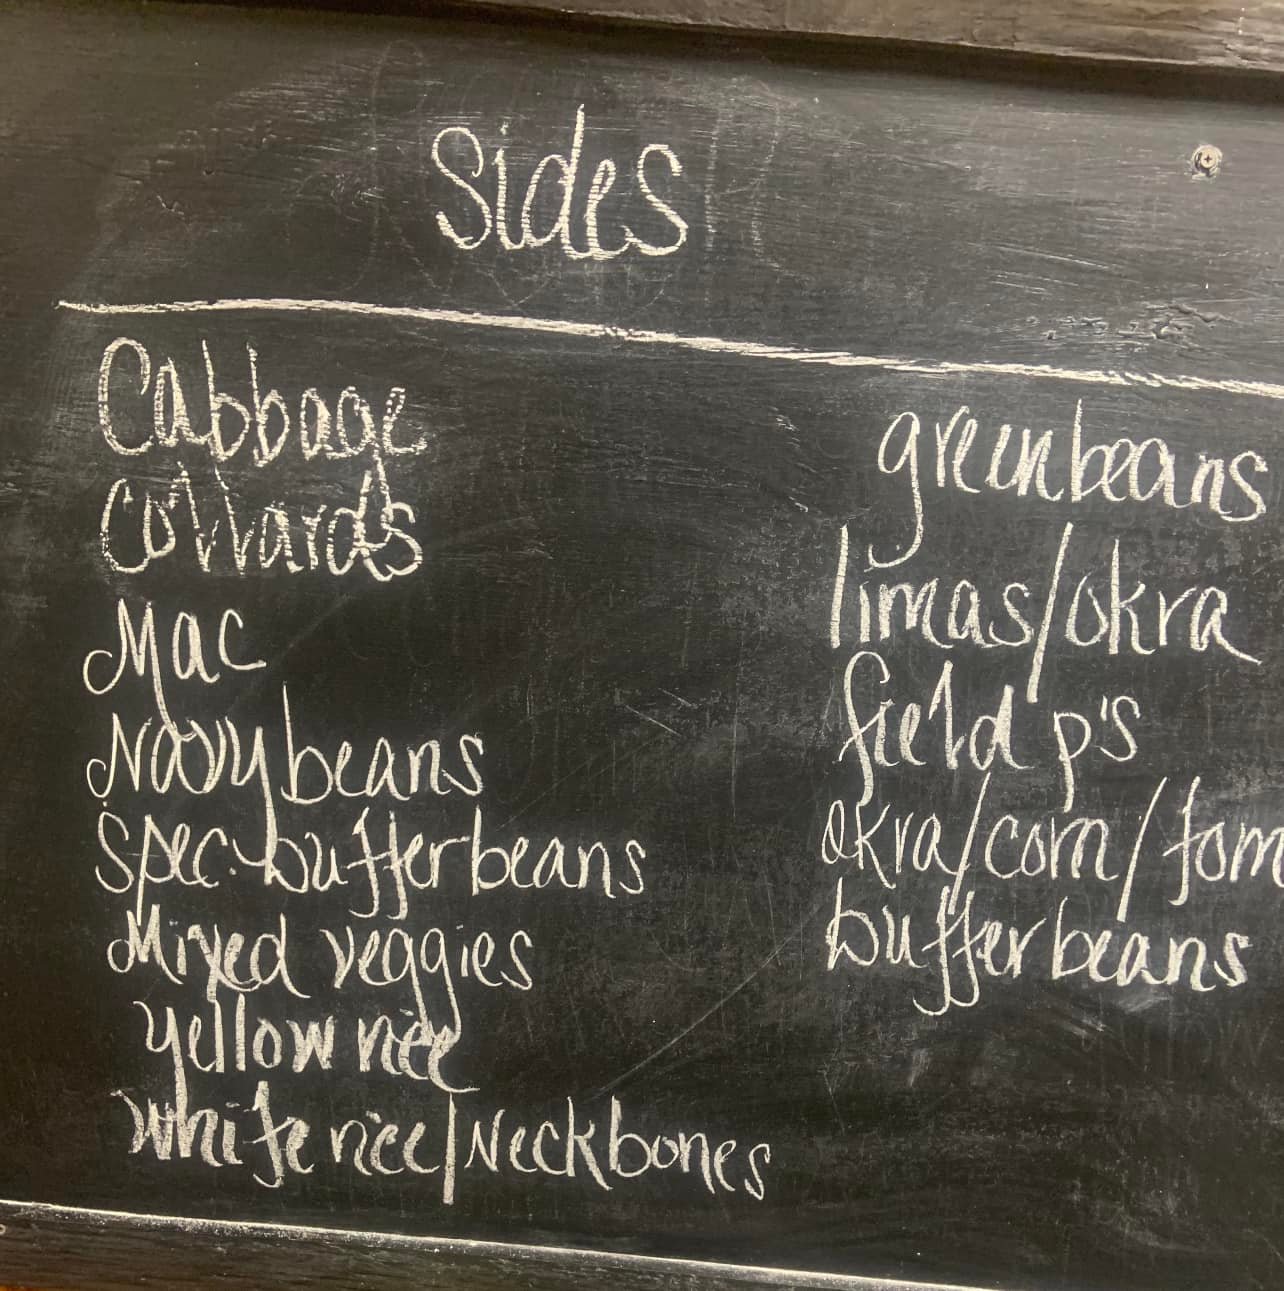 Sides
Cabbage
Collards
Mac
Navy beans
Spec. butter beans
Mixed veggies
Yellow rice
White rice/Neckbones
green beans
limas/okra
field p's
okra/corn/tom
butter beans